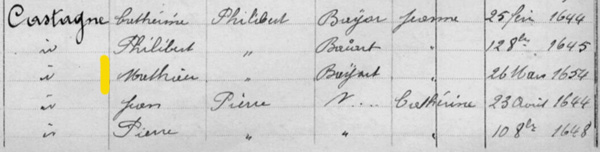 Castagne Catherine Philibert Boyer Jeanne 25 fév 1644
id Philibert " " 12 8bre 1645
id Mathieu " " 26 Mars 1654
id Jean Pierre N.... Catherine 23 Avril 1644
id Pierre " " " 10 8bre 1648